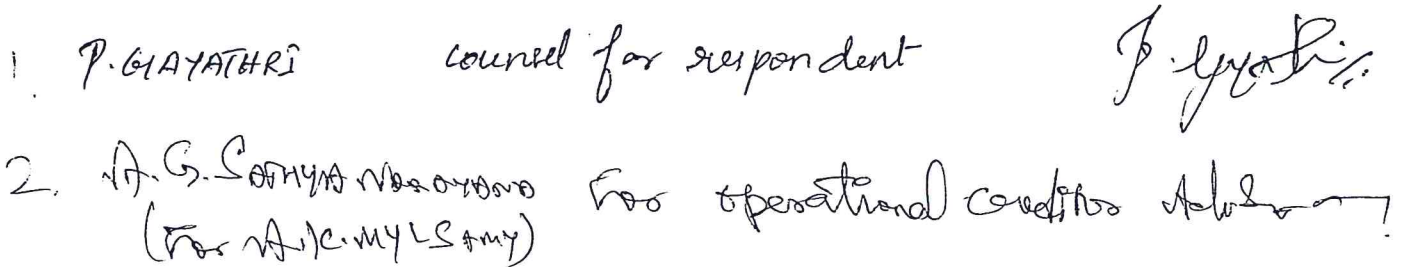 1. P. GAYATHRI counsel for respondent P. Gayathri
2. A.G. SATHYA NARAYANA For operational creditor
(For A.K. MYLSAMY)